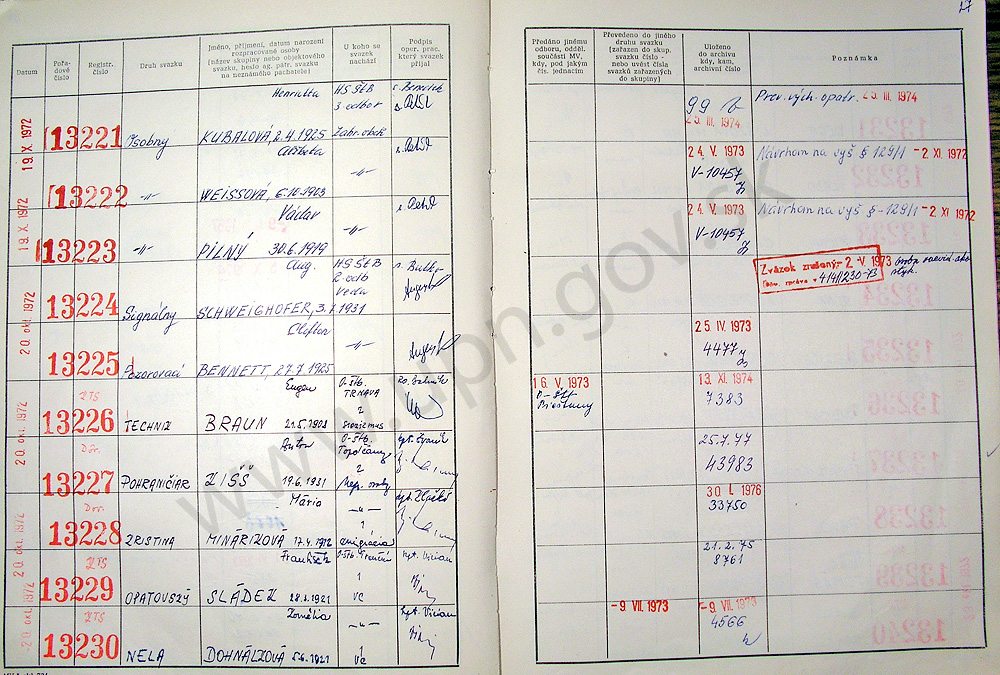 17
Datum
Pořadové číslo
Registr. číslo
Druh svazku
Jméno, příjmení, datum narození rozpracované osoby (název skupiny nebo objektového svazku, heslo ag. pátr. svazku na neznámého pachatele)
U koho se svazek nachází
Podpis oper. prac. který svazek přijal
Předáno jinému odboru, odděl. součásti MV, kdy, pod jakým čís. jednacím
Převedeno do jiného druhu svazku (zařazen do skup. svazku číslo - nebo uvést čísla svazků zařazených do skupiny)
Uloženo do archivu kdy, kam, archivní číslo
Poznámka
19 X. 1972
13221
Osobny
Henrietta
KUBALOVÁ, 2.4.1925
HS ŠtB
3 odbor
Zahr. obch
99
25. III. 1974
Prev. vých. opatr. 25. III. 1974
13222
-"-
Alžbeta
WEISSOVÁ, 6.10.1903
-"-
24. V. 1973
V-10457
Návrhom na vyš § 129/1 - 2 XI. 1972
19 X. 1972
13223
-"-
Václav
PILNÝ 30.6.1919
-"-
24. V. 1973
V-10457
Návrhom na vyš § - 129/1 - 2 XI. 1972
20. okt. 1972
13224
Signálny
Aug.
SCHWEIGHOFER, 3.1.1931
HS ŠtB
2. odb
Veda
Zväzok zrušený - 2 -V. 1973
13225
Pozorovací
Clifton
BENNETT, 27.7.1925
-"-
25 IV. 1973
4477
20. okt. 1972
13226
ZTS
TECHNIK
Eugen
BRAUN 21.5.1908
O-ŠtB.
TRNAVA
2
Sionizmus
16. V. 1973
O-ŠtB
Piešťany
13. XI. 1974
7383
13227
Dôv.
POHRANIČIAR
Anton
KIŠŠ 19.6.1931
O-ŠtB.
Topoľčany
2
Nepr. osoby
25.7.77
43983
20. okt. 1972
13228
Dôv.
KRISTINA
Mária
MINÁRIKOVÁ 17.4.1912
-"-
1
emigrácia
30 I. 1976
33750
13229
ZTS
OPATOVSKÝ
František
SLÁDEK 28.1.1921
O-ŠtB. Trenčín
1
VC
kpt. Vician
21.2.75
8761
20. okt. 1972
13230
ZTS
NELA
Kornélia
DOHNÁLKOVÁ 5.6.1921
-"-
1
VC
kpt. Vician
- 9. VII. 1973
- 9. VII. 1973
4566
www.upn.gov.sk